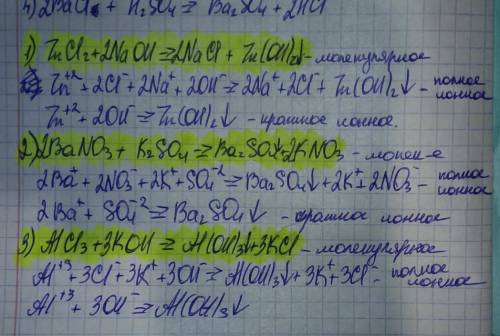 4) 2BaCl + H₂SO₄ ⇄ Ba₂SO₄ + 2HCl
1) ZnCl₂+2NaOH⇄2NaCl + Zn(OH)₂↓ - молекулярное
Zn⁺² + 2Cl⁻ + 2Na⁺ + 2OH⁻ ⇄ 2Na⁺ + 2Cl⁻ + Zn(OH)₂↓ - полное ионное
Zn⁺² + 2OH⁻ ⇄ Zn(OH)₂↓ - краткое ионное.
2) 2BaNO₃ + K₂SO₄ ⇄ Ba₂SO₄↓+2KNO₃ - молек-е
2Ba⁺ + 2NO₃⁻ + 2K⁺ + SO₄⁻² ⇄ Ba₂SO₄↓ + 2K⁺ + 2NO₃⁻ - полное ионное
2Ba⁺ + SO₄⁻² ⇄ Ba₂SO₄↓ - краткое ионное
3) AlCl₃+3KOH ⇄ Al(OH)₃↓+3KCl - молекулярное
Al⁺³ + 3Cl⁻ + 3K⁺ + 3OH⁻ ⇄ Al(OH)₃↓ + 3K⁺ + 3Cl⁻ - полное ионное
Al⁺³ + 3OH⁻ ⇄ Al(OH)₃↓